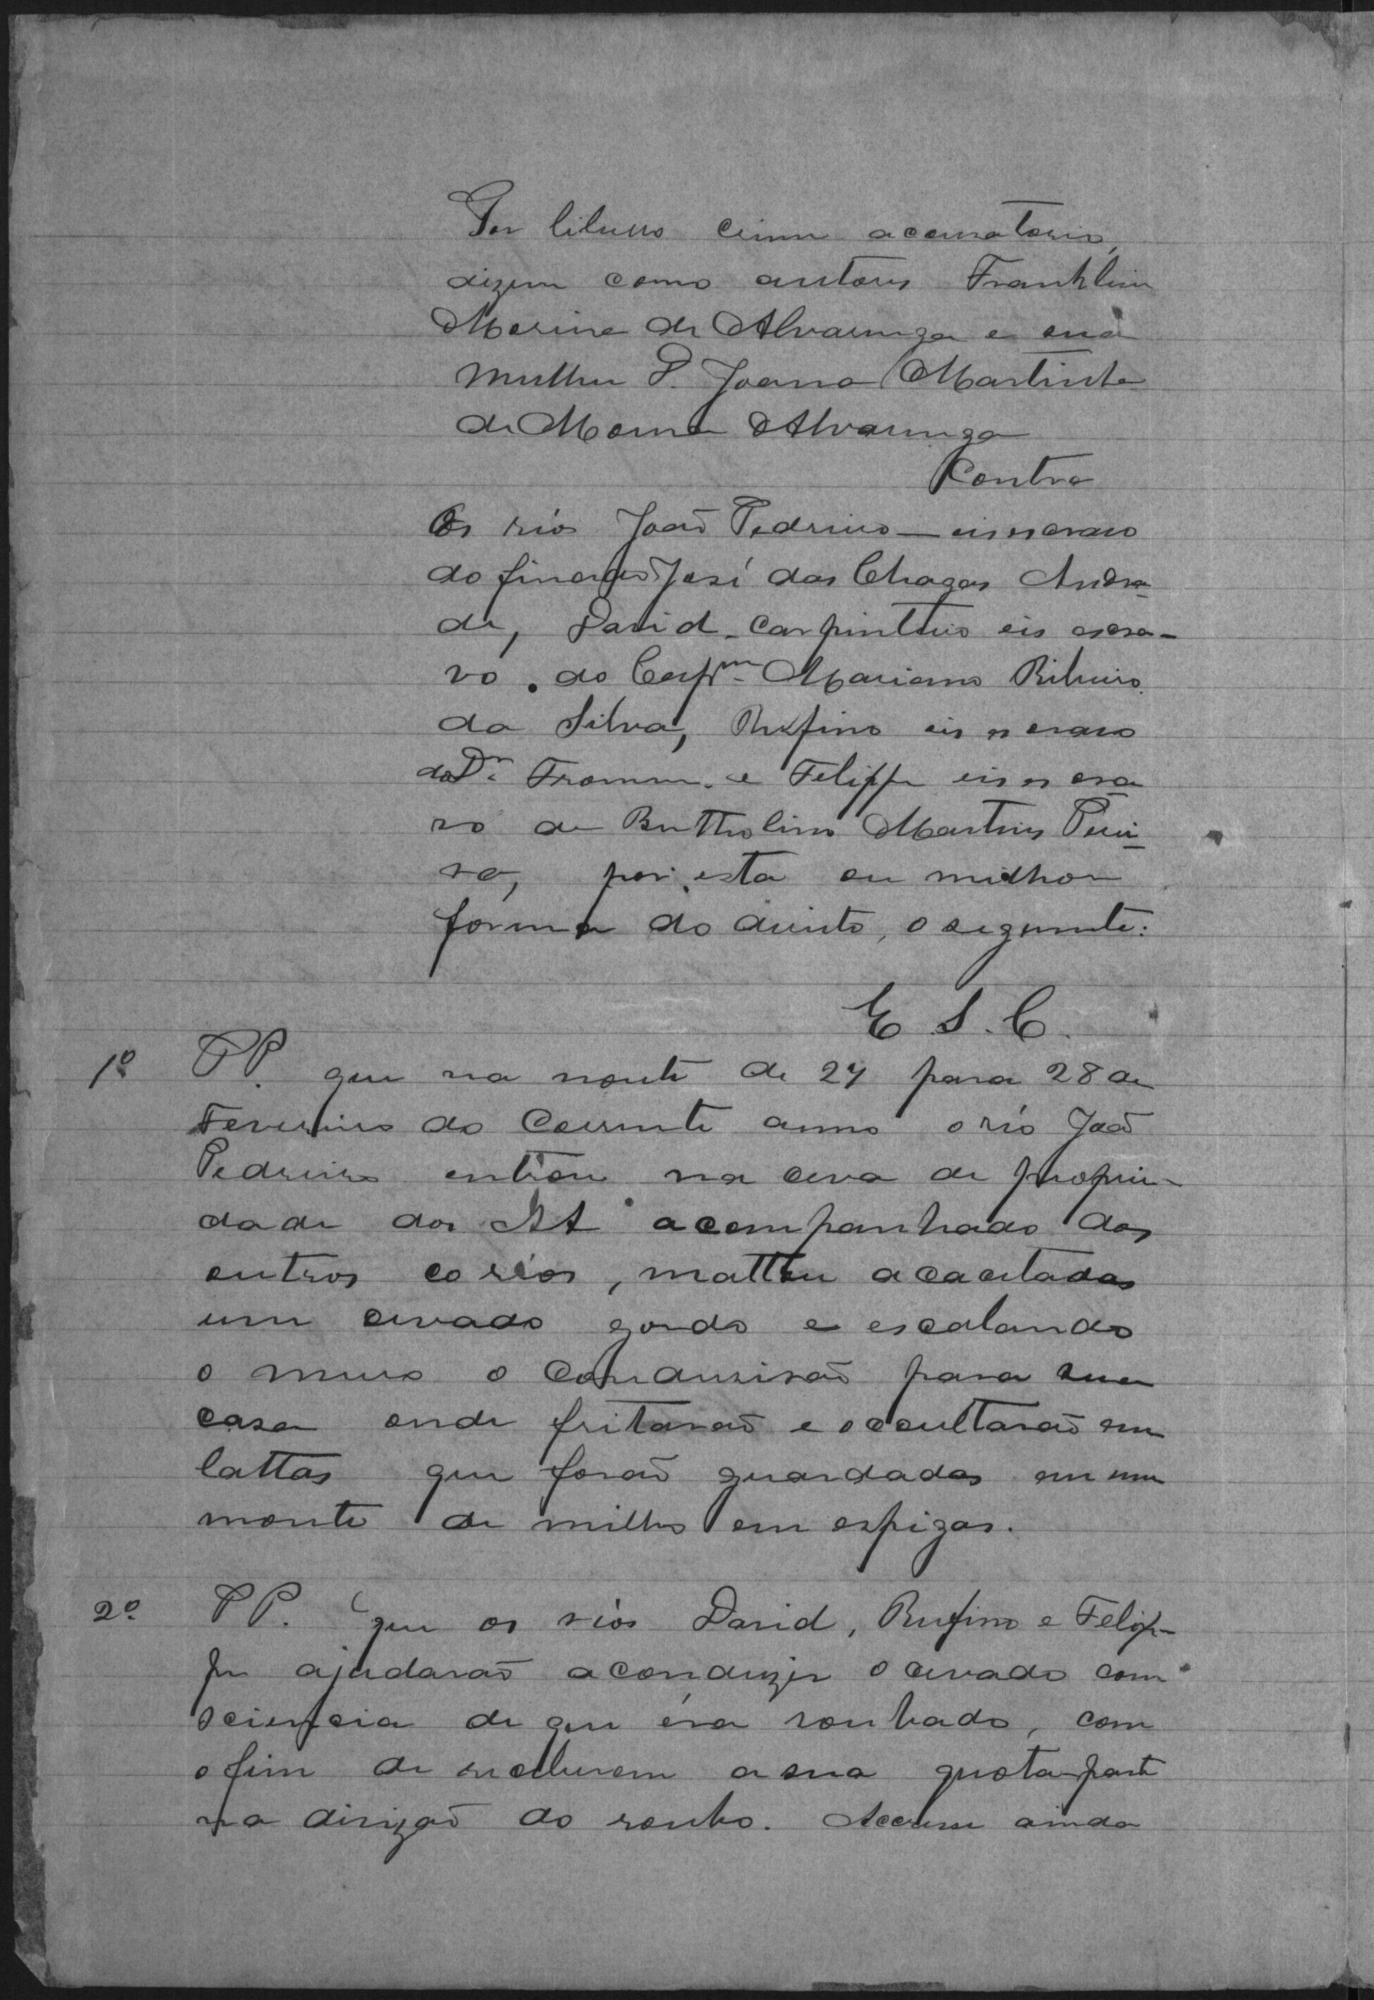 Por libello crime accusatorio,
dizem como autores Franklin
de Alvarenga e sua
mulher D. Joanna
de Alvarenga
Contra
Os réos João Pedreiro — eis escravo
do finado José das Chagas Andra-
de, David - Carpinteiro eis escra-
vo do Capm. Mariano Ribeiro
da Silva, Rufino eis escravo
do Dr. Fromm. e Felippe eis escra
vo de Bertholino Martins Perei-
ra, por esta ou milhor
fórma do direito, o seguinte:
E. S. C.
1º PP. que na noute de 27 para 28 de
Fevereiro do corrente anno o réo João
Pedreiro entrou na ceva de proprie-
dade dos AA acompanhado dos
outros co réos, mattou a cacetadas
um cevado gordo e escalando
o muro o condusirão para sua
casa onde fritarão e occultarão em
lattas que forão guardadas em um
monte de milho em espigas.
2º PP. que os réos David, Rufino e Felip-
pe ajudarão a conduzir o cevado com
sciencia de que éra roubado, com
o fim de receberem a sua quota parte
na divizão do roubo. Accresce ainda